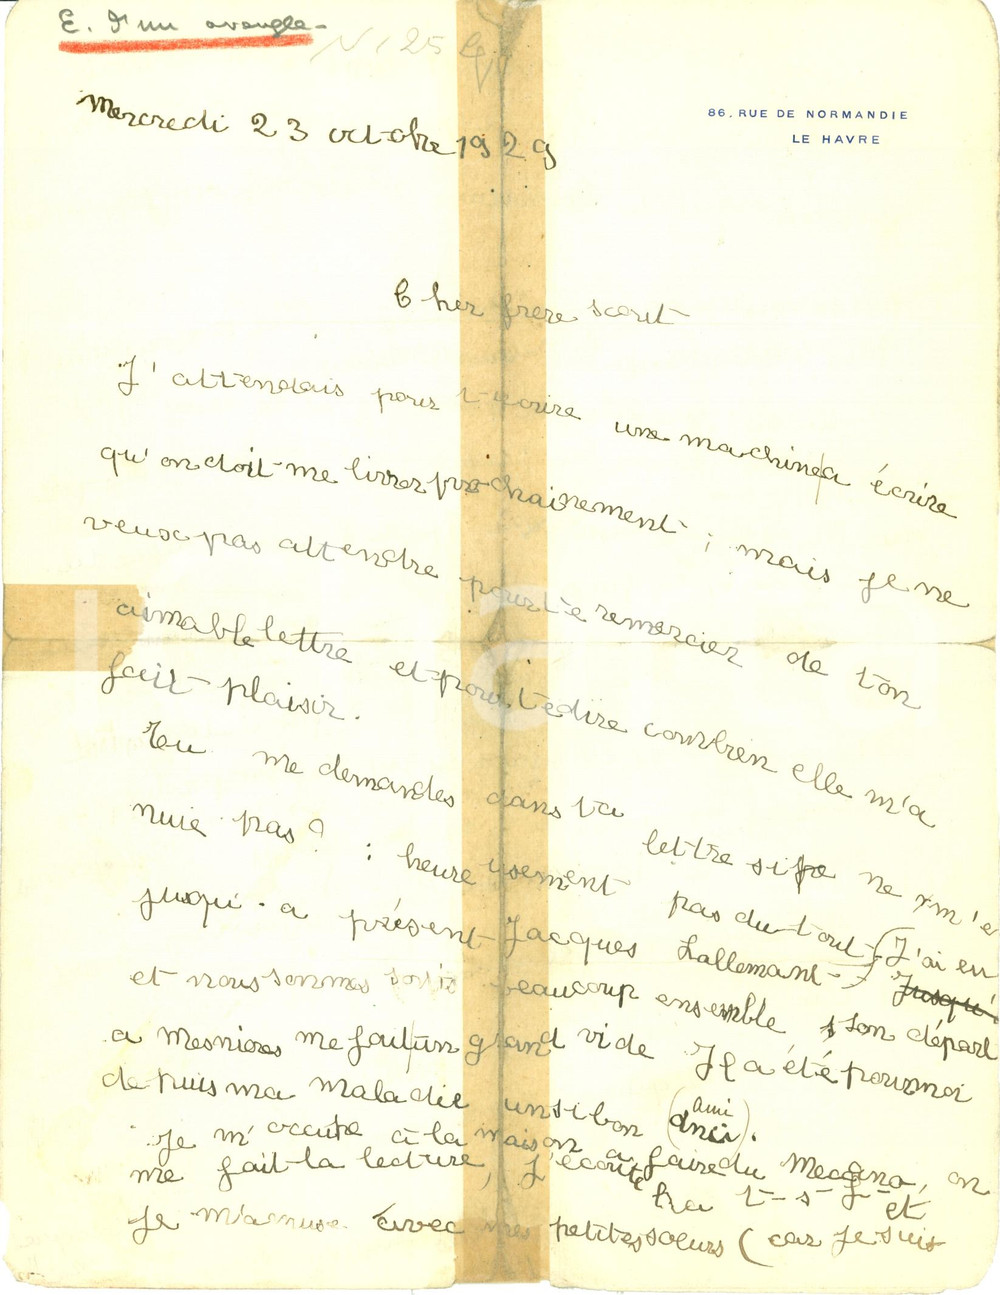 E. d'un aveugle.
N 25
86, RUE DE NORMANDIE
LE HAVRE
Mercredi 23 octobre 1929
Cher frere scout
J'attendais pour t-ecrire une machine a écrire
qu'on doit me livrer prochainement ; mais je ne
veux pas attendre pour te remercier de ton
aimable lettre et pour te dire combien elle m'a
fait plaisir.
Tu me demandes dans ta lettre si je ne m'en
nuie pas? : heureusement pas du tout (J'ai eu
jusqu'-a présent Jacques Lallemant-) Jusqu'
et nous sommes sortis beaucoup ensemble son départ
a Mesnieres me fait un grand vide Il a été pour moi
depuis ma maladie un si bon (ami) anci.
Je m'occupe a la maison a faire du Meccano, on
me fait la lecture, J'écoute la t-s-f- et
je m'amuse avec mes petites soeurs (car je suis